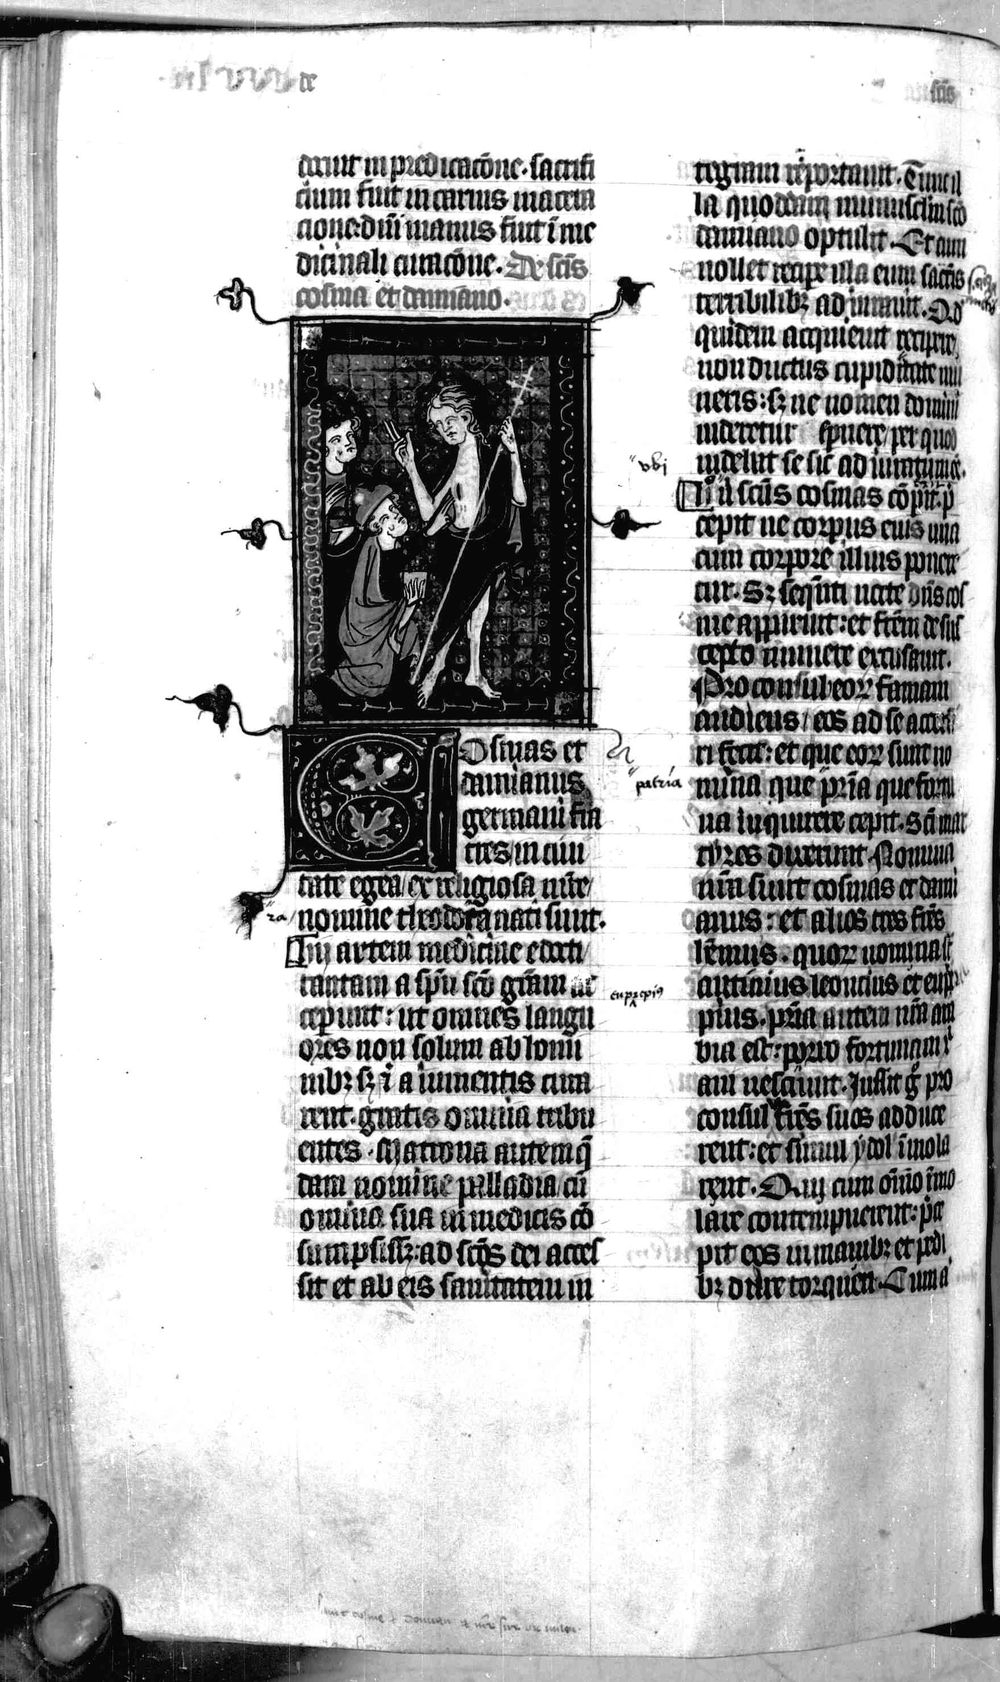 de
scis
ciuit in predicacōne. sacrifi
cium fuit in carnis macera
cione. diui manus fuit ī me
dicinali curacōne. De scīs
cosma et damiano.
Cosmas et
damianus
germani fra
tres, in ciui
tate egea, ex religiosa m̄re,
nomine theodora nati sunt.
Hij artem medicine edocti
tantam a sp̄u sc̄o gr̄am ac
ceperunt: ut omnes langu
ores non solum ab homi
nibꝫ sꝫ ⁊ a iumentis cura
rent. gratis omnia tribu
entes. Matrona autem q̄
dam nomine palladia cū
omnia sua in medicis cō
sumpsissꝫ: ad sc̄os dei acces
sit et ab eis sanitatem in
tegram reportauit. Tunc il
la quoddam munusculum sc̄o
damiano optulit. Et cum
nollet recipe illa eum sacr̄is
terribilibꝫ adiurauit. Qd
quidem acquieuit recipere,
non ductus cupiditate mu
neris: sꝫ ne nomen domini
uideretur spuere, per quod
uidebat se sic adiuratum eē.
ubi
Qd ū scūs cosmas cōpit. p̄
cepit ne corpus eius una
cum corpore illius ponere
tur. Sꝫ sequēti nocte dn̄s cos
me apparuit: et fr̄em de sus
cepto munere excusauit.
Proconsul eoꝝ famam
audiens, eos ad se accersi
ri fecit: et que eoꝝ sunt no
mina que pr̄ia que fortu
patria
na inquirere cepit. Sc̄i mar
tyres dixerunt. Nomina
nr̄a sunt cosmas et dami
anus: et alios tres fr̄es
hēmus. quoꝝ nomina st̄
antimus leoncius et eupre
euprepius
pius. pr̄ia autem nr̄a ara
bia est: porro fortunam xp̄i
ani nesciunt. Iussit g̊ pro
consul fr̄es suos adduce
rent: et simul ydol̄ īmola
rent. Qui cum oīno īmo
lare contempnerent: p̄ce
pit eos in manibꝫ et pedi
bꝫ dure torqueri. Cum a